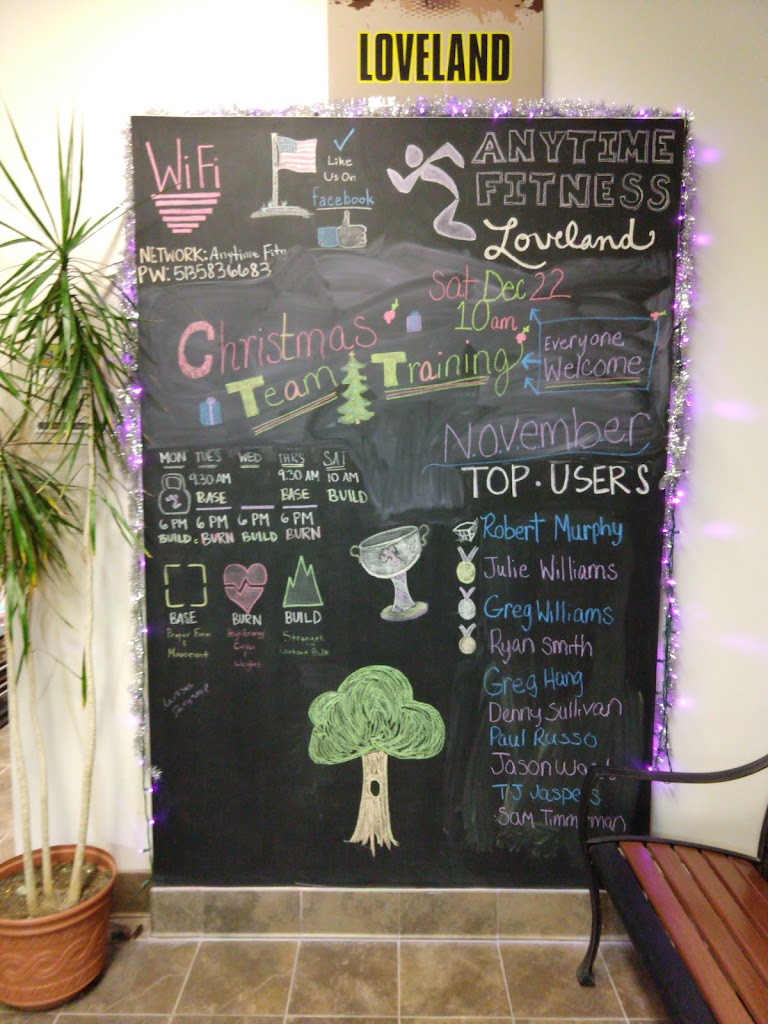 LOVELAND
WiFi
NETWORK: Anytime
PW: 5135836683
Like
Us On
facebook
ANYTIME
FITNESS
Loveland
Sat Dec 22
10am
Christmas
Team Training
Everyone
Welcome
November
TOP • USERS
MON TUES WED THRS SAT
9:30 AM 9:30 AM 10 AM
BASE BASE BUILD
6 PM 6 PM 6 PM 6 PM
BUILD BURN BUILD BURN
BASE BURN BUILD
Proper Form
&
Movement
High Energy
Cardio
&
Weights
Strength
without Bulk
Robert Murphy
Julie Williams
Greg Williams
Ryan Smith
Greg Hang
Denny Sullivan
Paul Russo
Jason
TJ Jaspers
Sam Timmerman